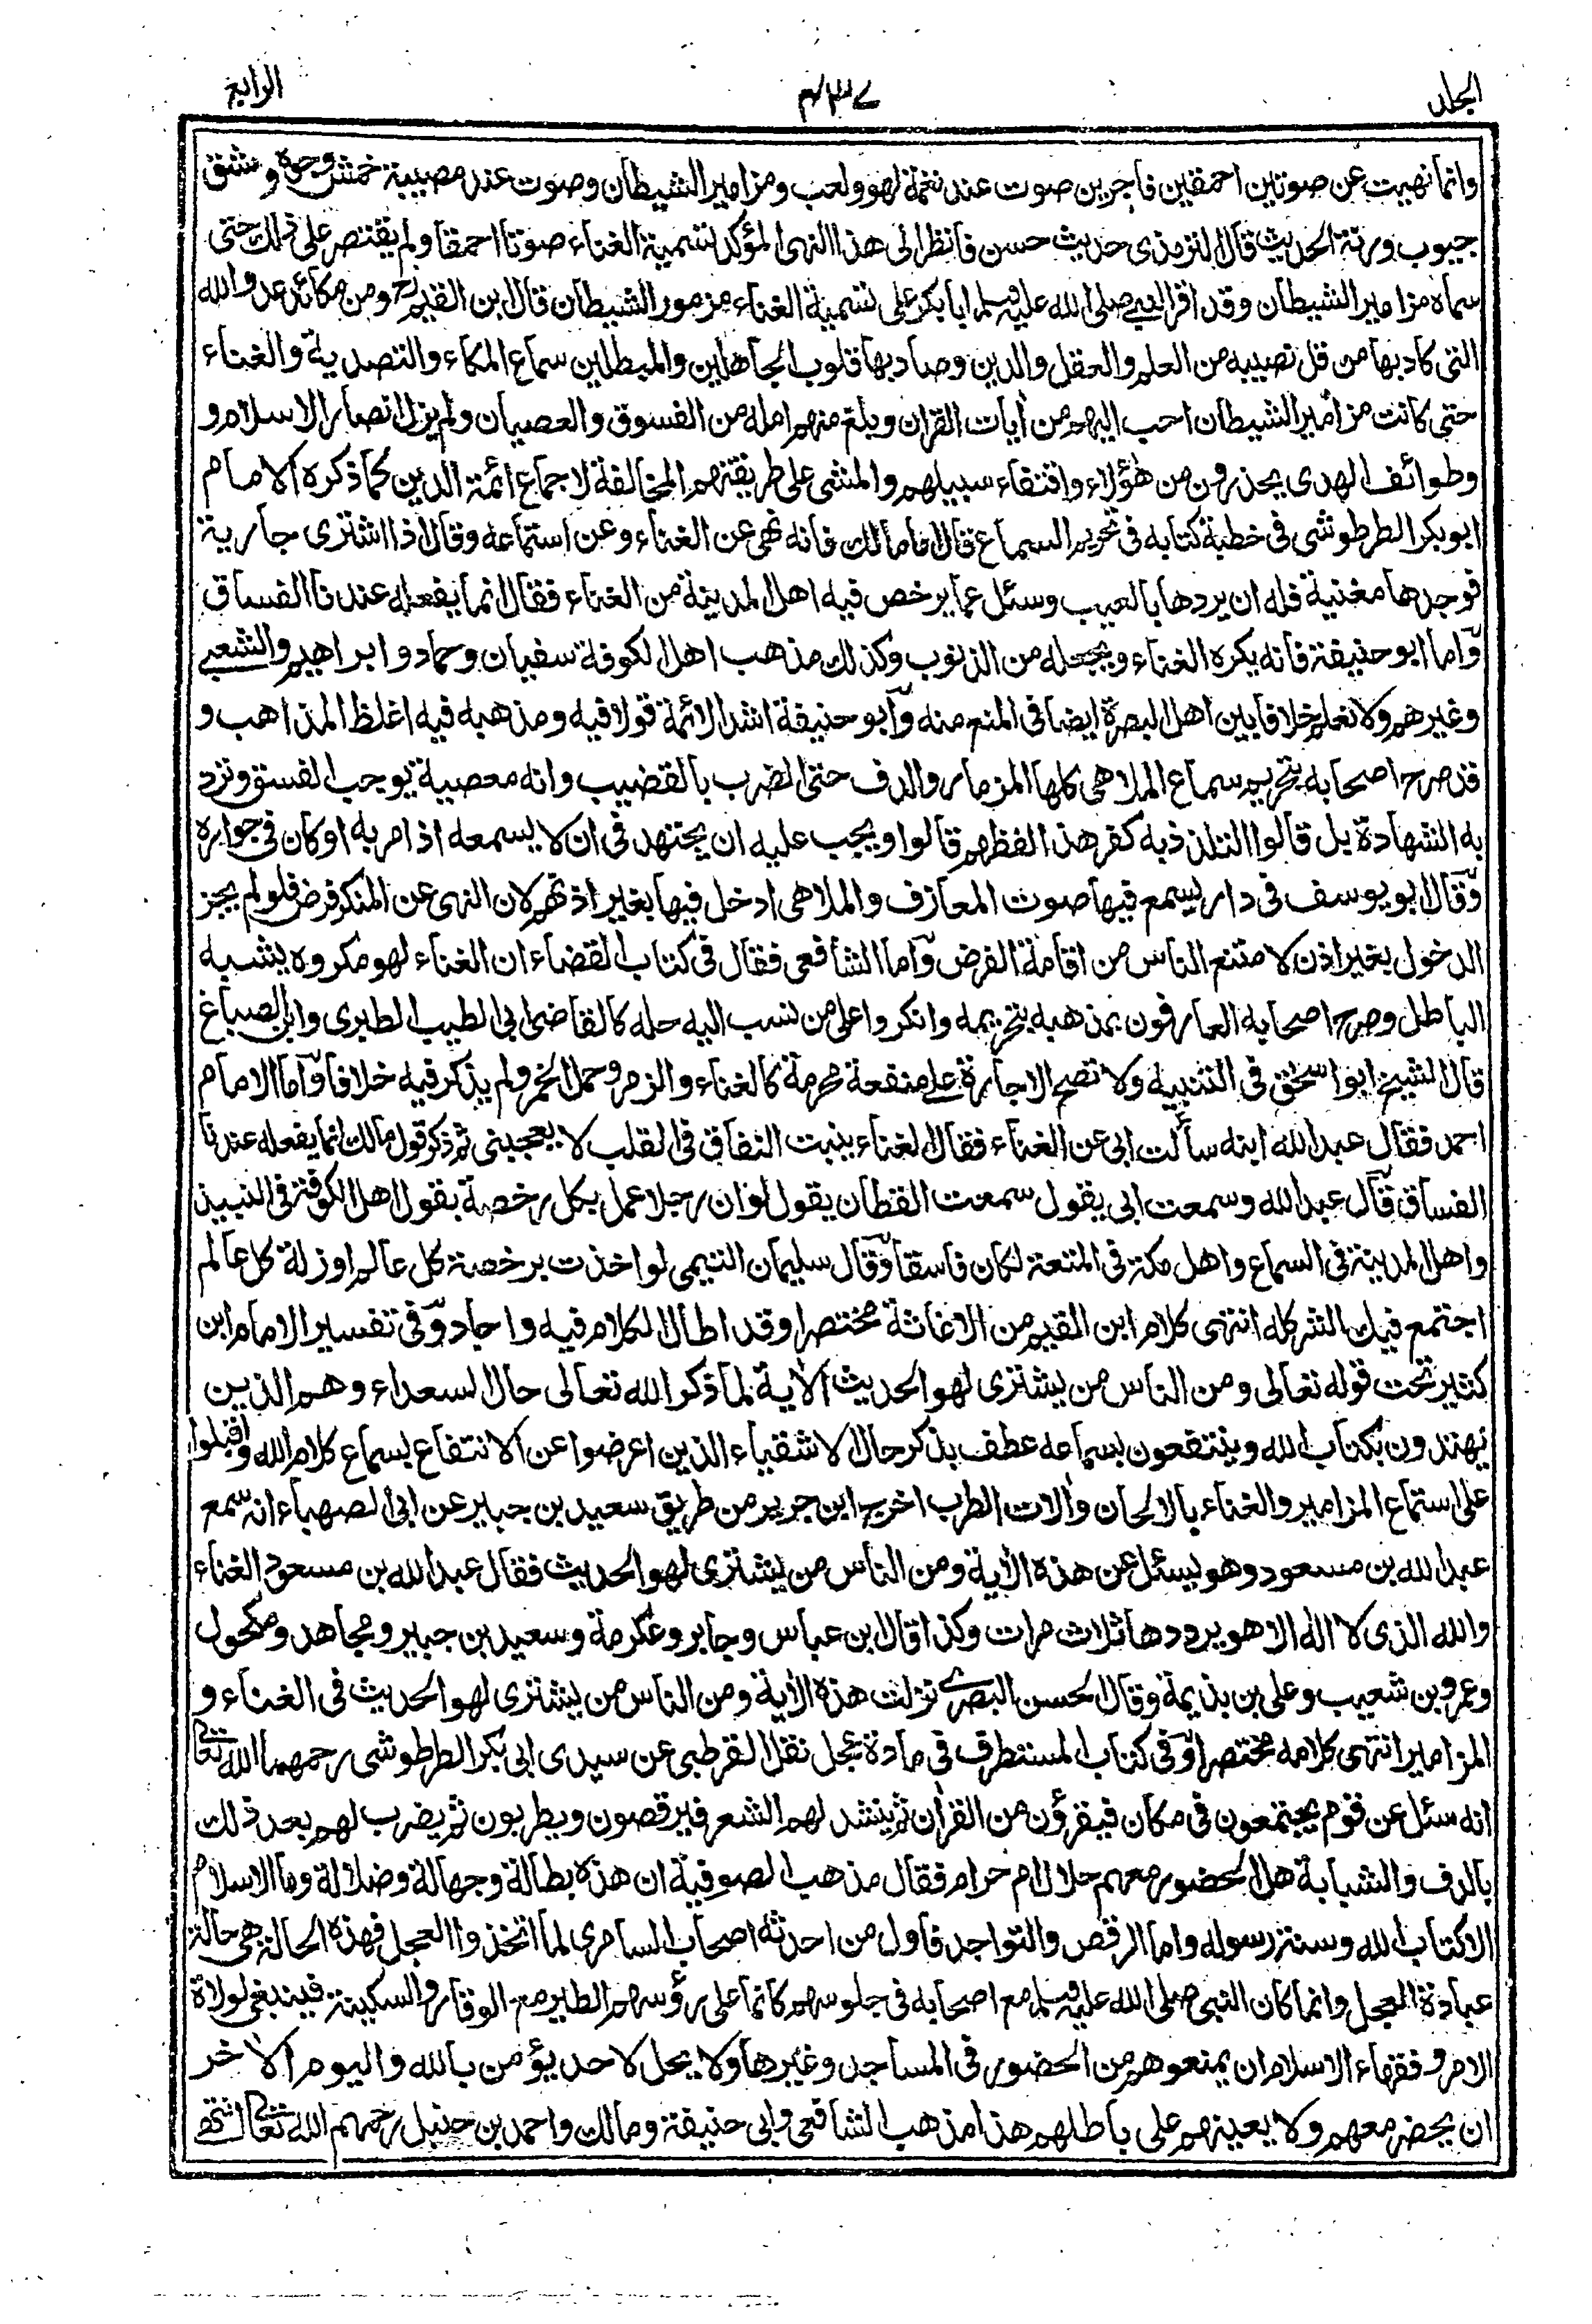 المجلد ٤٣٧ الرابع
وانما نهيت عن صوتين احمقين فاجرين صوت عند نغمة لهو ولعب ومزامير الشيطان وصوت عند مصيبة خمش وجوه وشق
جيوب ورنة الحديث قال الترمذى حديث حسن فانظر الى هذا النهى المؤكد لتسمية الغناء صوتا احمقا ولم يقتصر على ذلك حتى
سماه مزامير الشيطان وقد اقر النبى صلى الله عليه وسلم ابا بكر على تسمية الغناء مزمور الشيطان قال ابن القيم رح ومن مكائد عدو الله
التى كاد بها من قل نصيبه من العلم والعقل والدين وصاد بها قلوب الجاهلين والمبطلين سماع المكاء والتصدية والغناء
حتى كانت مزامير الشيطان احب اليهم من أيات القران وبلغ منهم امله من الفسوق والعصيان ولم يزل انصار الاسلام و
وطوائف الهدى يحذرون من هؤلاء واقتفاء سبيلهم والمشى على طريقتهم المخالفة لاجماع ائمة الدين كما ذكره الامام
ابو بكر الطرطوشى فى خطبة كتابه فى تحريم السماع قال فاما مالك فانه نهى عن الغناء وعن استماعه وقال اذا اشترى جارية
فوجدها مغنية فله ان يردها بالعيب وسئل عما يرخص فيه اهل المدينة من الغناء فقال انما يفعله عندنا الفساق
واما ابو حنيفة فانه يكره الغناء ويجعله من الذنوب وكذلك مذهب اهل الكوفة سفيان وحماد وابراهيم والشعبى
وغيرهم ولا نعلم خلافا بين اهل البصرة ايضا فى المنع منه وابو حنيفة اشد الائمة قولا فيه ومذهبه فيه اغلظ المذاهب و
قد صرح اصحابه بتحريم سماع الملاهى كلها المزمار والدف حتى الضرب بالقضيب وانه معصية يوجب الفسق وترد
به الشهادة بل قالوا التلذذ به كفر هذا لفظهم قالوا ويجب عليه ان يجتهد فى ان لا يسمعه اذا مر به او كان فى جواره
وقال ابو يوسف فى دار يسمع فيها صوت المعازف والملاهى ادخل فيها بغير اذنهم لان النهى عن المنكر فرض فلو لم يجز
الدخول بغير اذن لامتنع الناس من اقامة الفرض واما الشافعى فقال فى كتاب القضاء ان الغناء لهو مكروه يشبه
الباطل وصرح اصحابه العارفون بمذهبه بتحريمه وانكروا على من نسب اليه حله كالقاضى ابى الطيب الطبرى وابن الصباغ
قال الشيخ ابو اسحٰق فى التنبيه ولا تصح الاجارة على منفعة محرمة كالغناء والزمر وحمل الخمر ولم يذكر فيه خلافا واما الامام
احمد فقال عبد الله ابنه سألت ابى عن الغناء فقال الغناء ينبت النفاق فى القلب لا يعجبنى ثم ذكر قول مالك انما يفعله عندنا
الفساق قال عبد الله وسمعت ابى يقول سمعت القطان يقول لو ان رجلا عمل بكل رخصة بقول اهل الكوفة فى النبيذ
واهل المدينة فى السماع واهل مكة فى المتعة لكان فاسقا وقال سليمان التيمى لو اخذت برخصة كل عالم او زلة كل عالم
اجتمع فيك الشر كله انتهى كلام ابن القيم من الاغاثة مختصرا وقد اطال الكلام فيه واجاد وفى تفسير الامام ابن
كثير تحت قوله تعالى ومن الناس من يشترى لهو الحديث الأية لما ذكر الله تعالى حال السعداء وهم الذين
يهتدون بكتاب الله وينتفعون بسماعه عطف بذكر حال الاشقياء الذين اعرضوا عن الانتفاع بسماع كلام الله واقبلوا
على استماع المزامير والغناء بالالحان وألات الطرب اخرج ابن جرير من طريق سعيد بن جبير عن ابى الصهباء انه سمع
عبد الله بن مسعود وهو يسئل عن هذه الأية ومن الناس من يشترى لهو الحديث فقال عبد الله بن مسعود الغناء
والله الذى لا اله الا هو يرددها ثلاث مرات وكذا قال ابن عباس وجابر وعكرمة وسعيد بن جبير ومجاهد ومكحول
وعمرو بن شعيب وعلى بن بذيمة وقال الحسن البصرى نزلت هذه الأية ومن الناس من يشترى لهو الحديث فى الغناء و
المزامير انتهى كلامه مختصرا وفى كتاب المستطرف فى مادة عجل نقل القرطبى عن سيدى ابى بكر الطرطوشى رحمهما الله تعالى
انه سئل عن قوم يجتمعون فى مكان فيقرؤن من القرأن ثم ينشد لهم الشعر فيرقصون ويطربون ثم يضرب لهم بعد ذلك
بالدف والشبابة هل الحضور معهم حلال ام حرام فقال مذهب الصوفية ان هذه بطالة وجهالة وضلالة وما الاسلام
الا كتاب الله وسنة رسوله واما الرقص والتواجد فاول من احدثه اصحاب السامرى لما اتخذوا العجل فهذه الحالة هى حالة
عبادة العجل وانما كان النبى صلى الله عليه وسلم مع اصحابه فى جلوسهم كانما على رؤسهم الطير مع الوقار والسكينة فينبغى لولاة
الامر وفقهاء الاسلام ان يمنعوهم من الحضور فى المساجد وغيرها ولا يحل لاحد يؤمن بالله واليوم الأخر
ان يحضر معهم ولا يعينهم على باطلهم هذا مذهب الشافعى وابى حنيفة ومالك واحمد بن حنبل رحمهم الله تعالى انتهى